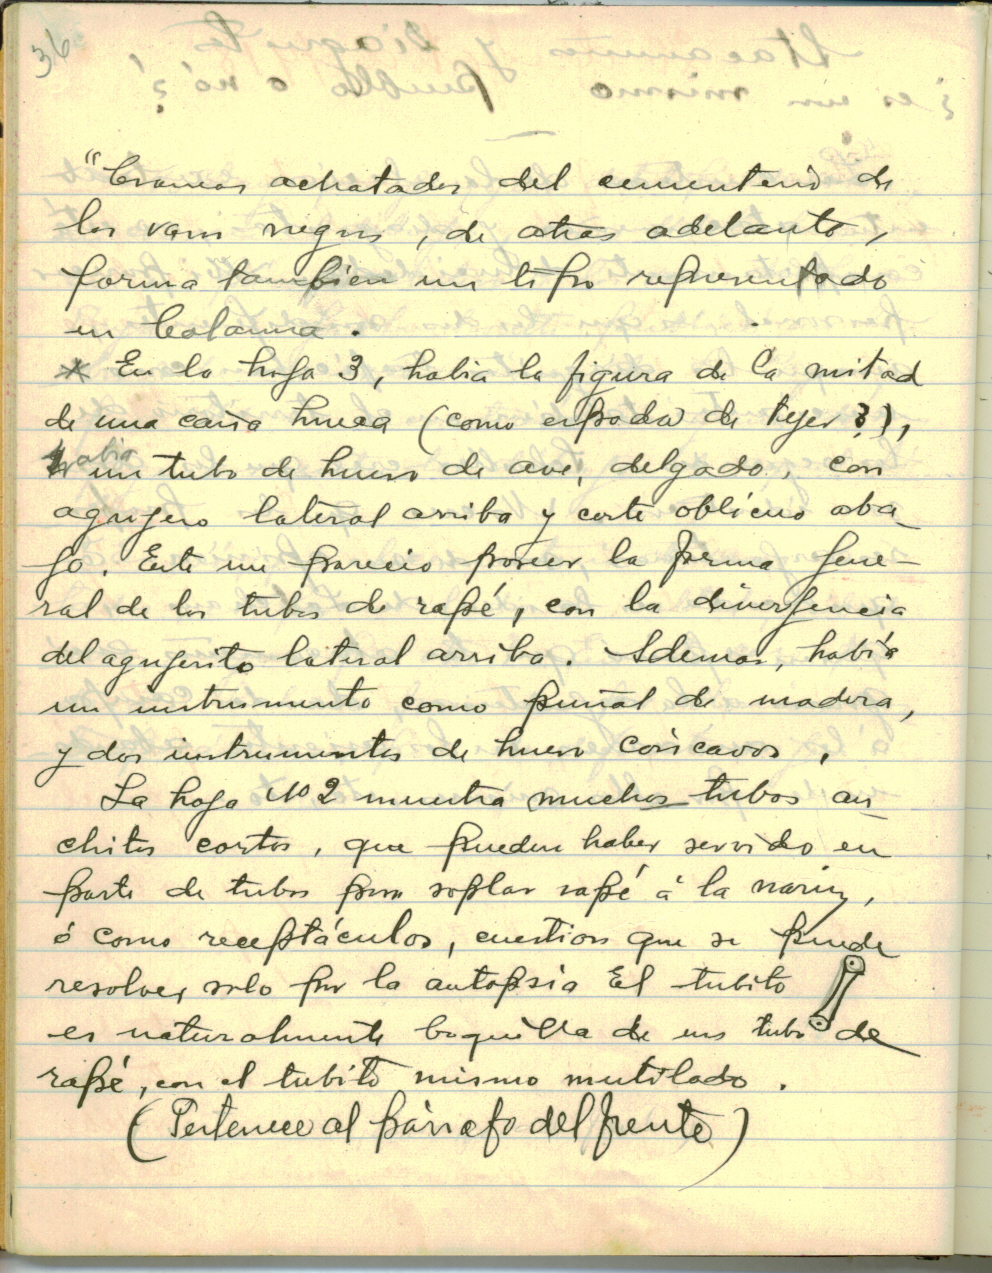 36
"Craneos achatados del cementerio de
los vasos negros, de atras adelante,
forma tambien un tipo representado
en Calama.
* En la hoja 3, habia la figura de la mitad
de una caña hueca (como espada de tejer?),
habia un tubo de hueso de ave, delgado, con
agujero lateral arriba y corte oblicuo aba-
jo. Este me parecio poseer la forma gene-
ral de los tubos de rapé, con la divergencia
del agujerito lateral arriba. Ademas, habia
un instrumento como puñal de madera,
y dos instrumentos de hueso concavos,
La hoja No 2 muestra muchos tubos an
chitos cortos, que pueden haber servido en
parte de tubos para soplar rapé á la nariz,
ó como receptáculos, cuestion que se puede
resolver solo por la autopsia El tubito
es naturalmente boquilla de un tubo de
rapé, con el tubito mismo mutilado.
(Pertenece al párrafo del frente)